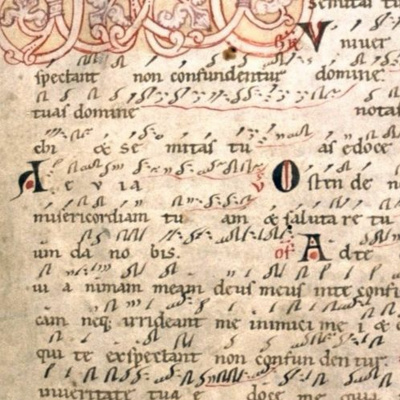 semitas tu
GR V niuer
spectant non confundentur domine.
tuas domine notas
chi & se mitas tu as edoce
A e v ia V O sten de n
misericordiam tu am & saluta re tu
um da no bis. of A d te
ui a nimam meam deus meus in te confi
cam neq; irrideant me inimici me i & e
qui te exspectant non confun den tur.
in ueritate tua & doce me quia